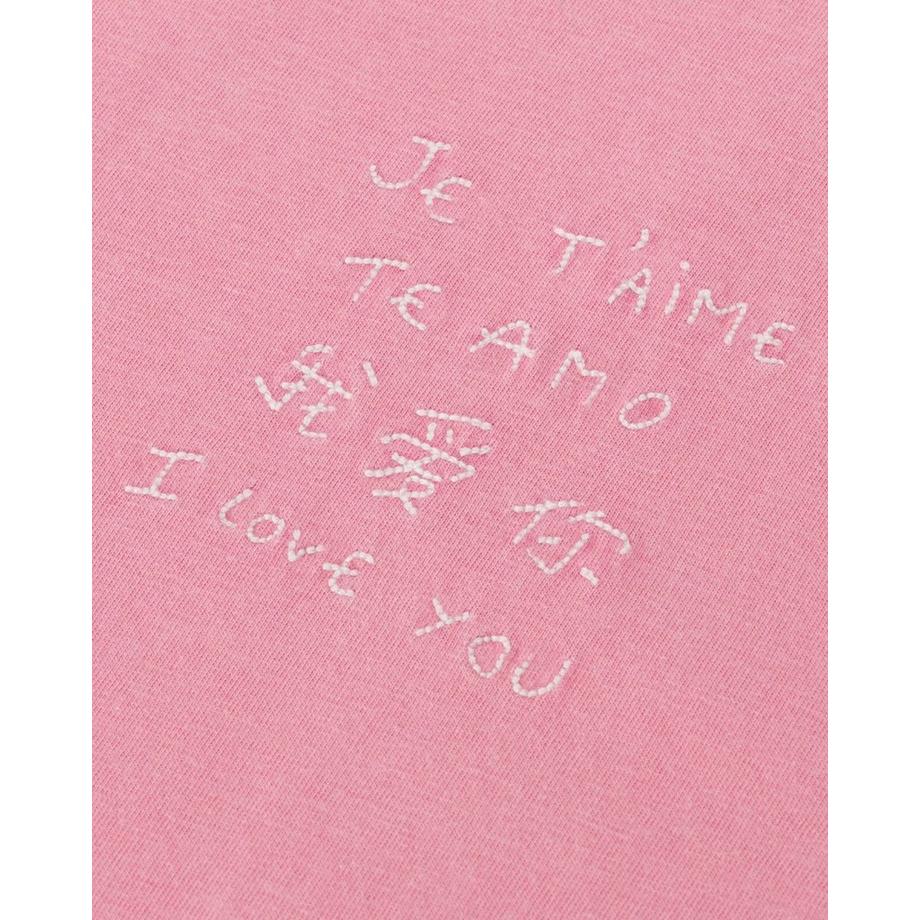 JE T'AiME
TE AMO
我爱你
I love YOU